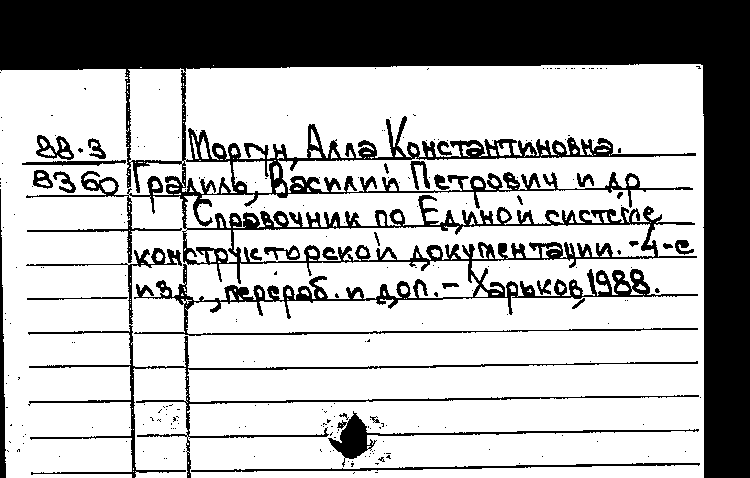 88.3 Моргун, Алла Константиновна.
В360 Градиль, Василий Петрович и др
Справочник по Единой системе
конструкторской документации. - 4-е
изд., перераб. и доп. - Харьков, 1988.